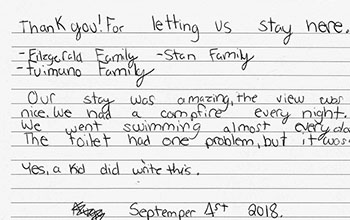 Thank you! For letting us stay here.
-Fitzgerald Family -Stan Family
-Tuimano Family
Our stay was amazing, the view was
nice. We had a campfire every night.
We went swimming almost every da
The toilet had one problem, but it was
Yes, a kid did write this.
September 4st 2018.